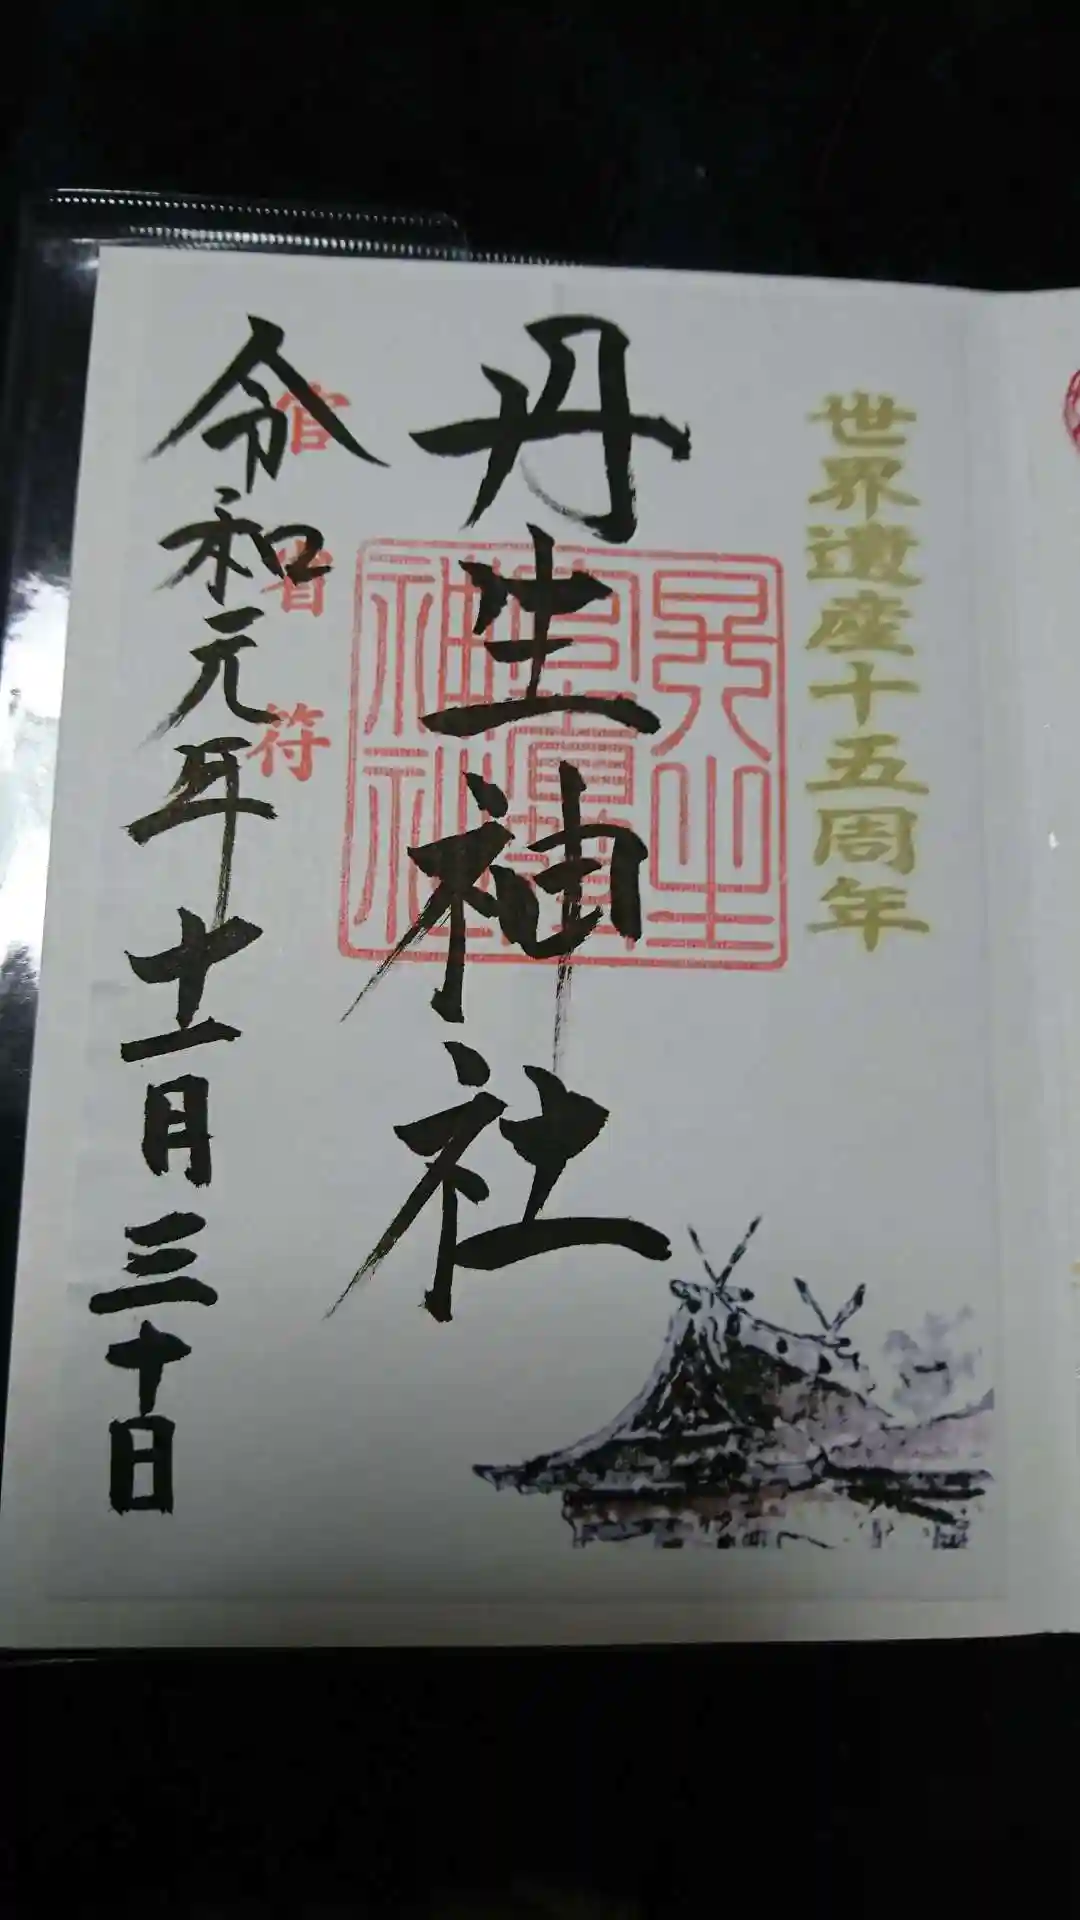 世界遺産十五周年
丹生神社
官省符
令和元年十一月三十日